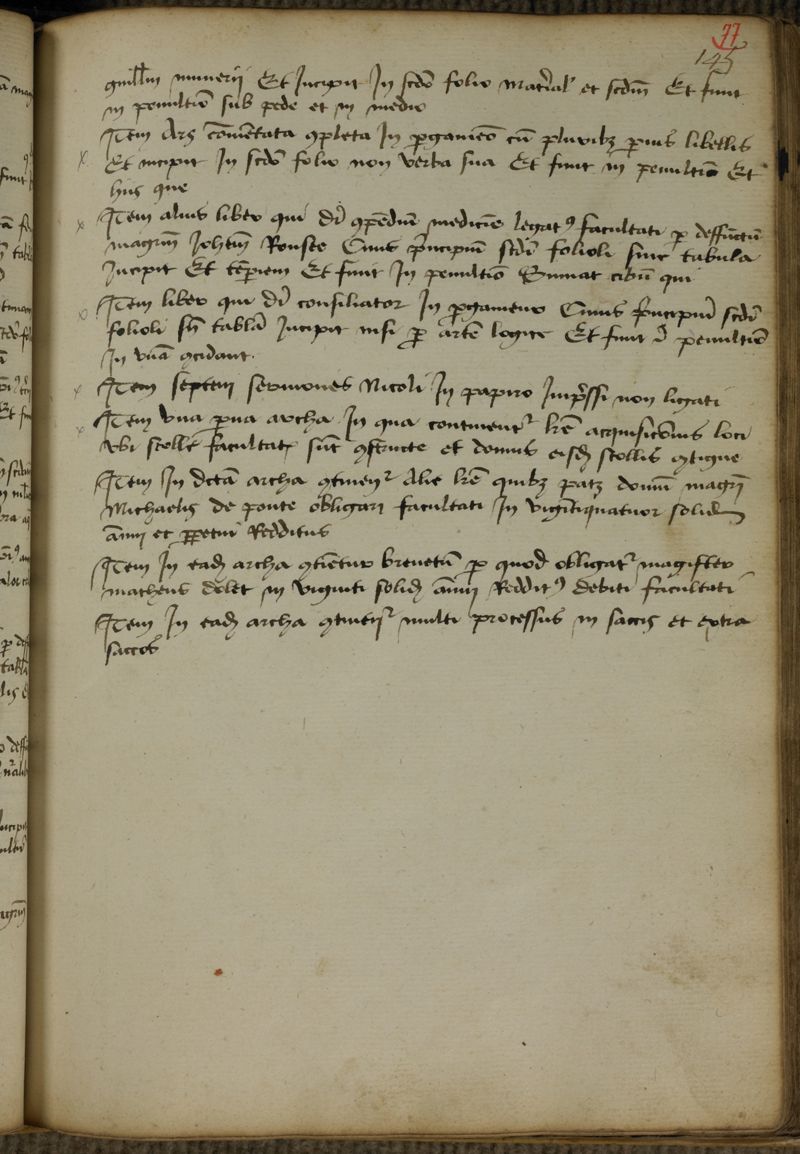 77
145
guill'm munerii Et Incipit In scdo folio mat'ial' et scdm Et finit
in penultio sub pede et in medio
Item Ars comentata 9pleta In pgameno cu pluribz paruis libellis
Et incipit In scdo folio non verba sua Et finit in penultio Et
huis que
Item alius liber qui dr 9pendiu medicine legat9 facultati p deffunctu
magrm Joh'em Rouste Cuius pncipiu scdi folioli sine tabula
Incipit Et tepiem Et finit In penultio cibu qui
Item liber qui dr consiliator In pgameno Cuius pncipiu scdi
folioli sn tabla Incipit nisi p arte logice Et finit I penultio
In vna 9cidant.
Item septem sermones Nicoli In papiro Impssi non ligati
Item vna pua archa In qua continent' lre acquisitionis loci
vbi scolle facultat' sut 9structe et domus eisd scollis 9tigue
Item In dcta archa 9tinet' Alie lre quibz patz domu magri
Michaelis de ponte obligari facultati In vigitiquatuor solid
annui et ppetui Redditus
Item In ead archa 9tinetur breuetu p quod obligat' magister
matheus delet in viginti solid annui Reddit9 debiti facultati
Item In ead archa 9tinet' multi processus in saccis et extra
saccos